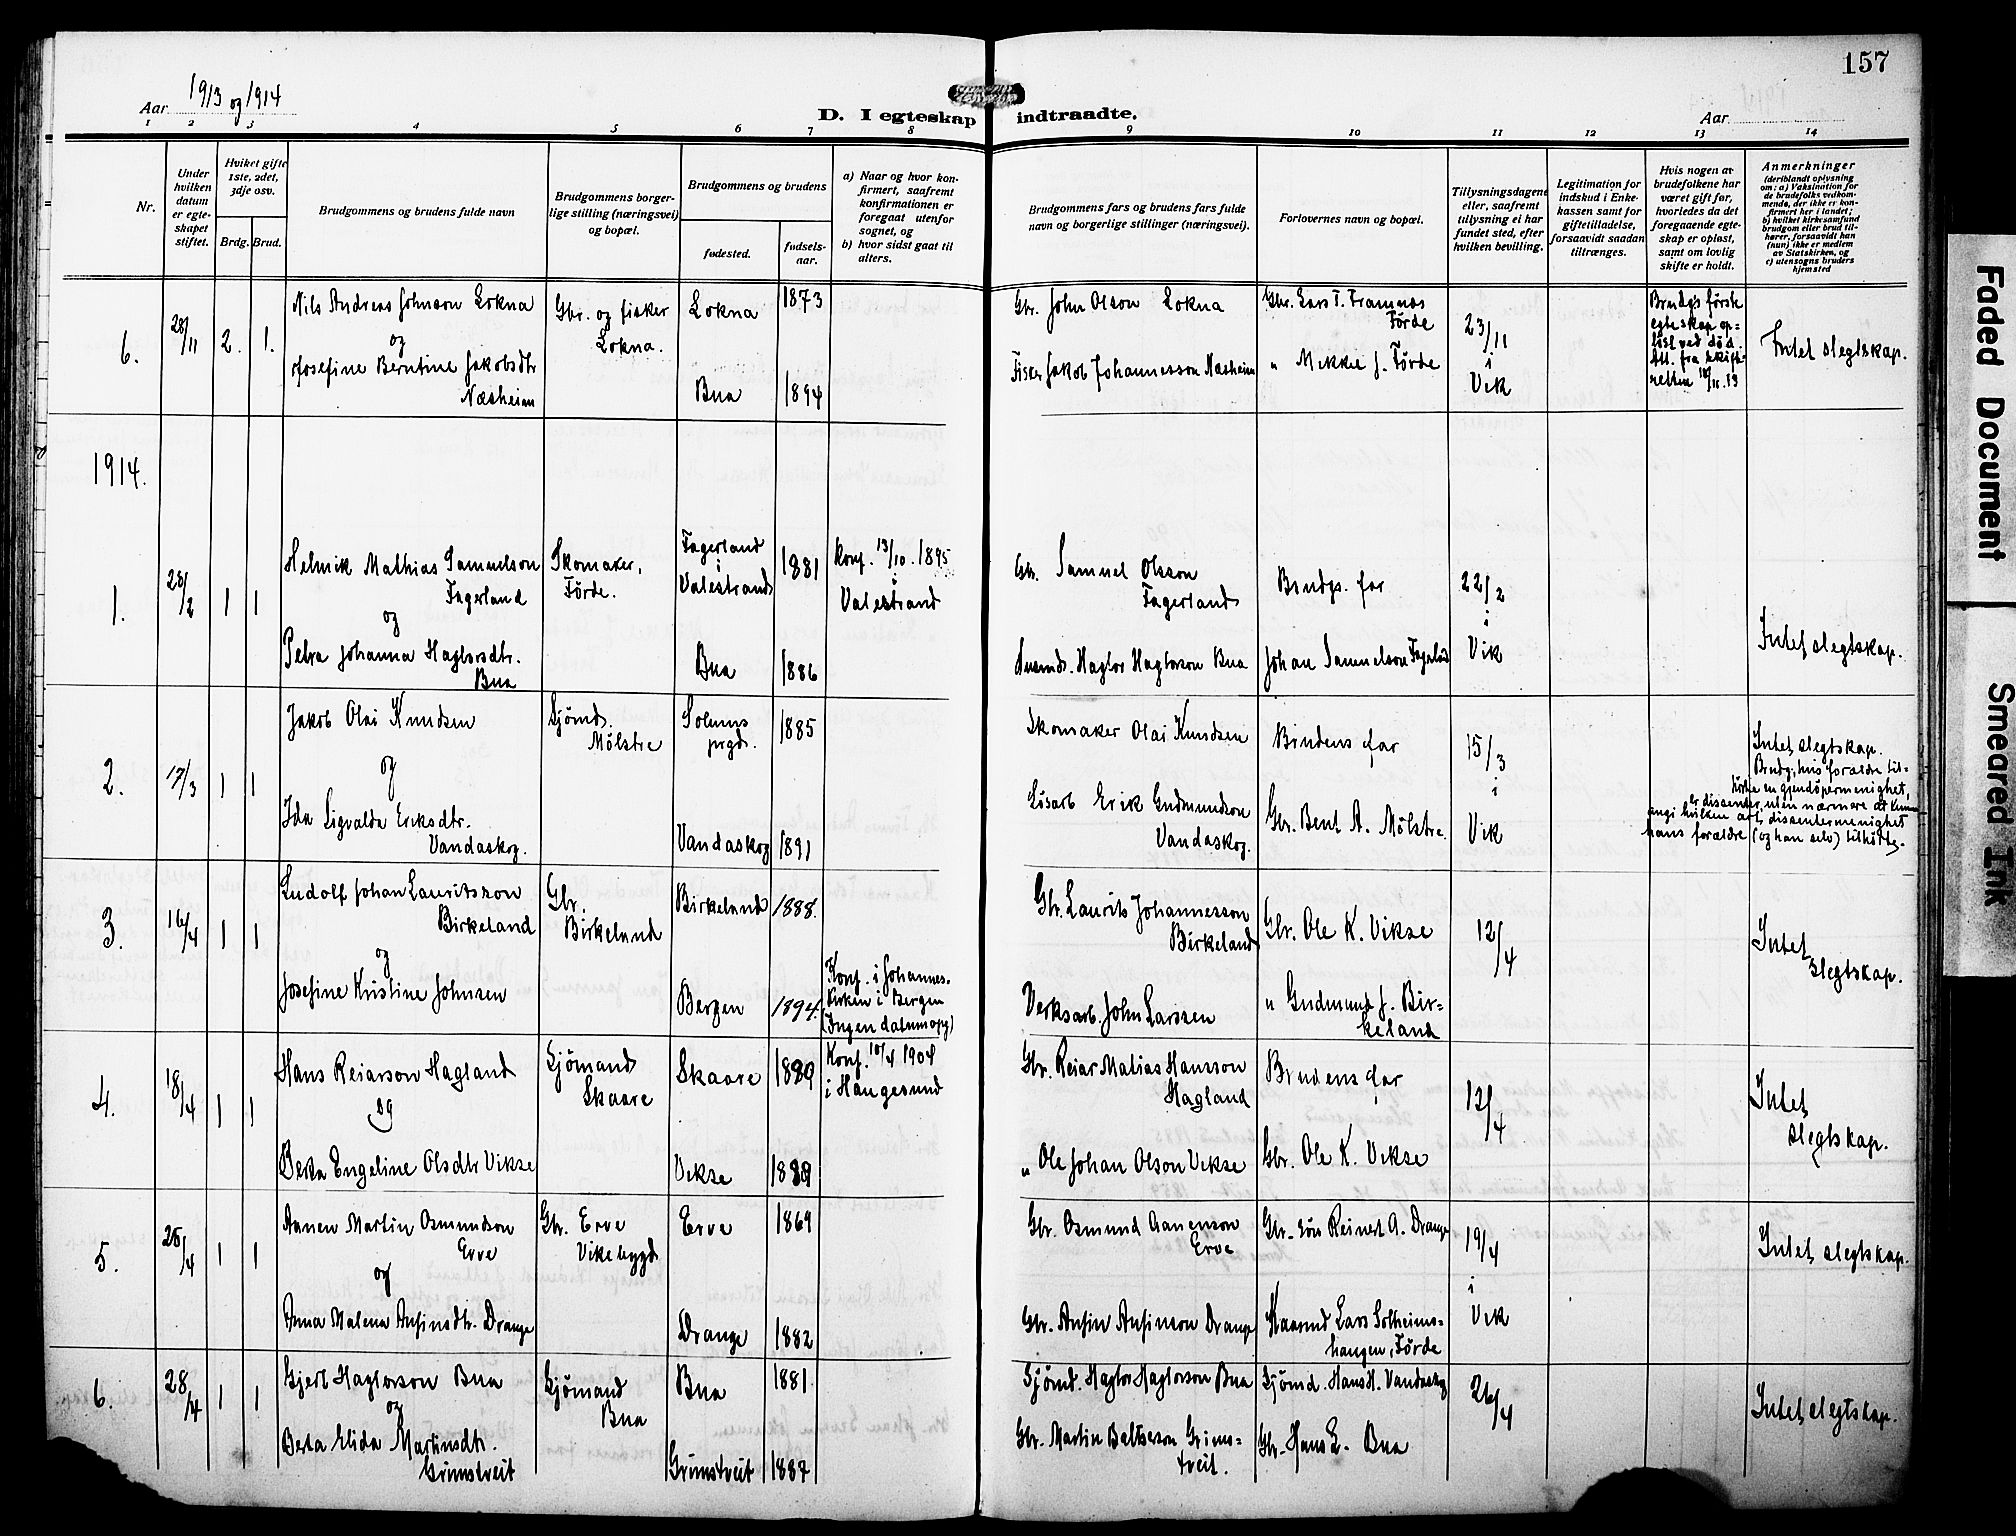 157
Aar 1913 og 1914
D. I egteskap indtraadte.
Aar
1 2 3 4 5 6 7 8 9 10 11 12 13 14
Nr.
Under hvilken datum er egteskapet stiftet.
Hviket gifte 1ste, 2det, 3dje osv.
Brdg. Brud.
Brudgommens og brudens fulde navn
Brudgommens borgerlige stilling (næringsvei) og bopæl.
Brudgommens og brudens
fødested.
fødselsaar.
a) Naar og hvor konfirmert, saafremt konfirmationen er foregaat utenfor sognet, og
b) hvor sidst gaat til alters.
Brudgommens fars og brudens fars fulde navn og borgerlige stillinger (næringsvei).
Forlovernes navn og bopæl.
Tillysningsdagene eller, saafremt tillysning ei har fundet sted, efter hvilken bevilling.
Legitimation for indskud i Enkekassen samt for giftetilladelse, forsaavidt saadan tiltrænges.
Hvis nogen av brudefolkene har været gift før, hvorledes da det foregaaende egteskap er opløst, samt om lovlig skifte er holdt.
Anmerkninger
(deriblandt oplysning om: a) Vaksination for de brudefolks vedkommende, der ikke er konfirmert her i landet; b) hvilket kirkesamfund brudgom eller brud tilhører, forsaavidt han (hun) ikke er medlem av Statskirken, og c) utensogns bruders hjemsted
6. 28/11 2. 1.
Nils Andreas Johnson Lokna
og
Josefine Berntine Jakobsdtr
Næsheim
Gbr. og fisker
Lokna.
Lokna 1873
Bua 1894
Gbr. John Olson Lokna
Fisker Jakob Johannesson Næsheim
Gbr. Lars T. Framnes
Førde
" Mikkel J. Førde
23/11
i
Vik
Brudgs første
egteskap op=
löst ved död.
Att. fra skifte-
retten 10/11.13
Intet slegtskap.
1914.
1. 28/2 1 1
Helmik Mathias Samuelson
Fagerland
og
Petra Johanna Hagtorsdtr.
Bua
Skomaker,
Förde.
Fagerland
i
Valestrand 1881
Bua 1886
Konf. 13/10. 1895
i
Valestrand
Gbr. Samuel Olsson
Fagerland
Husmd. Hagtor Hagtorson Bua
Brudgs. far
Johan Samuelson Fagerland
22/2
i
Vik
Intet slegtskap.
2. 17/3 1 1
Jakob Olai Knudsen
og
Ida Sigvalda Eriksdtr.
Vandaskog.
Sjömd.
Mölstre
Solums
prgd. 1885
Vandaskog 1891
Skomaker Olai Knudsen
Lösarb Erik Gudmundson
Vandaskog.
Brudens far
Gbr. Bent A. Mölstre
15/3
i
Vik
Intet slegtskap.
Brudg., hvis forældre til=
hörte en gjendöpermenighet,
er dissenter, uten nærmere at kunne
angi hvilken art, dissentermenighet
hans forældre (og han selv) tilhörte.
3. 16/4 1 1
Ludolf Johan Lauritsson
Birkeland
og
Josefine Kristine Johnsen
Gbr.
Birkeland
Birkeland 1888.
Bergen 1894.
Konf. i Johannes-
kirken i Bergen
(Ingen datum opg)
Gbr. Laurits Johannesson
Birkeland
Verksarb. John Larssen
Gbr. Ole K. Vikse
" Gudmund J. Bir=
keland
12/4
Intet
slegtskap.
4. 18/4 1 1
Hans Reiarson Hagland
og
Berta Engeline Olsdtr Vikse
Sjömand
Skaare
Skaare 1889
Vikse 1889
Konf. 10/4 1904
i Haugesund
Gbr. Reiar Matias Hansson
Hagland
" Ole Johan Olson Vikse
Brudens far
Gbr. Ole K. Vikse
12/4
Intet
slegtskap.
5. 25/4 1 1
Aanen Martin Osmundson
Erve
og
Anna Malena Anfinsdtr. Drange
Gbr. Erve
Vikebygd
Erve 1869
Drange 1882
Gbr. Osmund Aanenson
Erve
Gbr. Anfin Anfinson Drange
Gbr. sön Reinert A. Drange
Kaarmd Lars Solheims-
haugen, Förde
19/4
i
Vik
Intet slegtskap.
6. 28/4 1 1
Gjert Hagtorson Bua
og
Berta Elida Martinsdtr.
Grimstveit
Sjömand
Bua
Bua 1881
Grimstveit 1887
Sjömd. Hagtor Hagtorson Bua
Gbr. Martin Baltseson Grims=
tveit.
Sjömd. Hans H. Vandaskog
Gbr. Hans L. Bua
26/4
Intet slegtskap.
Faded Document
Smeared Ink